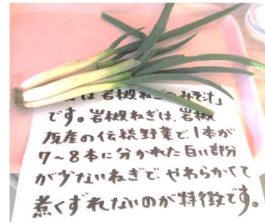 は岩槻ねぎのみそ汁」
です。岩槻ねぎは、岩槻
原産の伝統野菜で、1本が
7〜8本に分かれた白い部分
が少ないねぎで やわらかくて
煮くずれないのが特徴です。